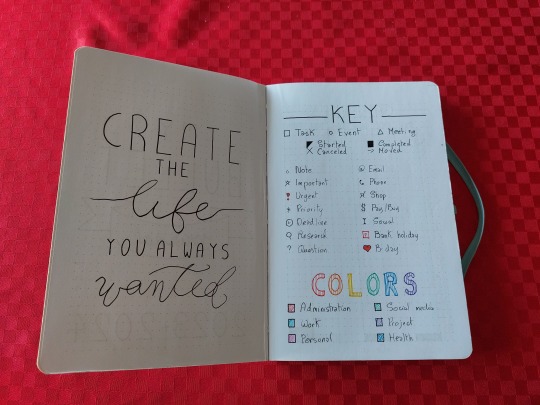 CREATE
THE
life
YOU ALWAYS
wanted
KEY
Task Event Meeting
Started Completed
Canceled Moved
Note Email
Important Phone
Urgent Shop
Priority Pay/Buy
Deadline Social
Research Bank holiday
? Question B-day
COLORS
Administration Social media
Work Project
Personal Health